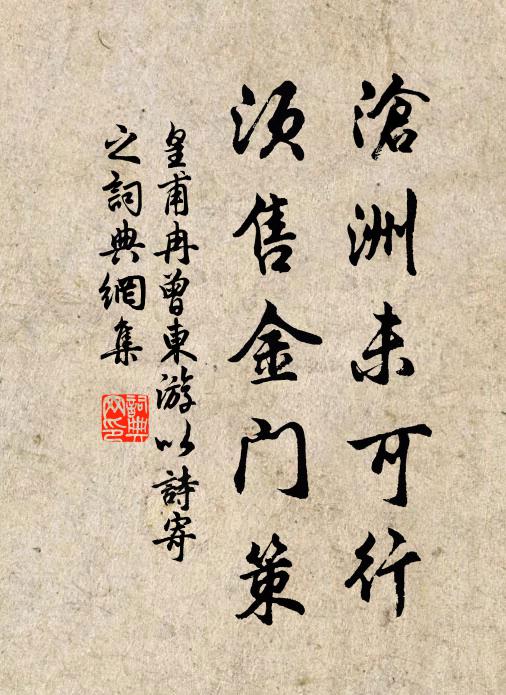 滄洲未可行
須售金門策
皇甫冉曾東游以詩寄
之詞典網集
詞典
网印